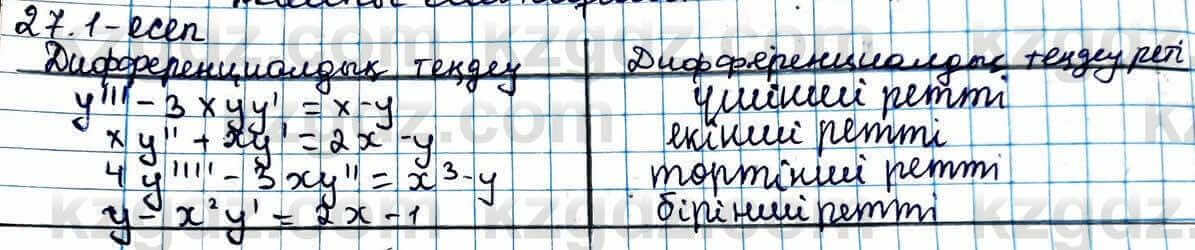 27.1-есеп
Дифференциалдық теңдеу Дифференциалдық теңдеу реті
y''' - 3xyy' = x-y үшінші ретті
xy'' + xy' = 2x-y екінші ретті
4y'''' - 3xy'' = x³-y төртінші ретті
y - x²y' = 2x-1 бірінші ретті